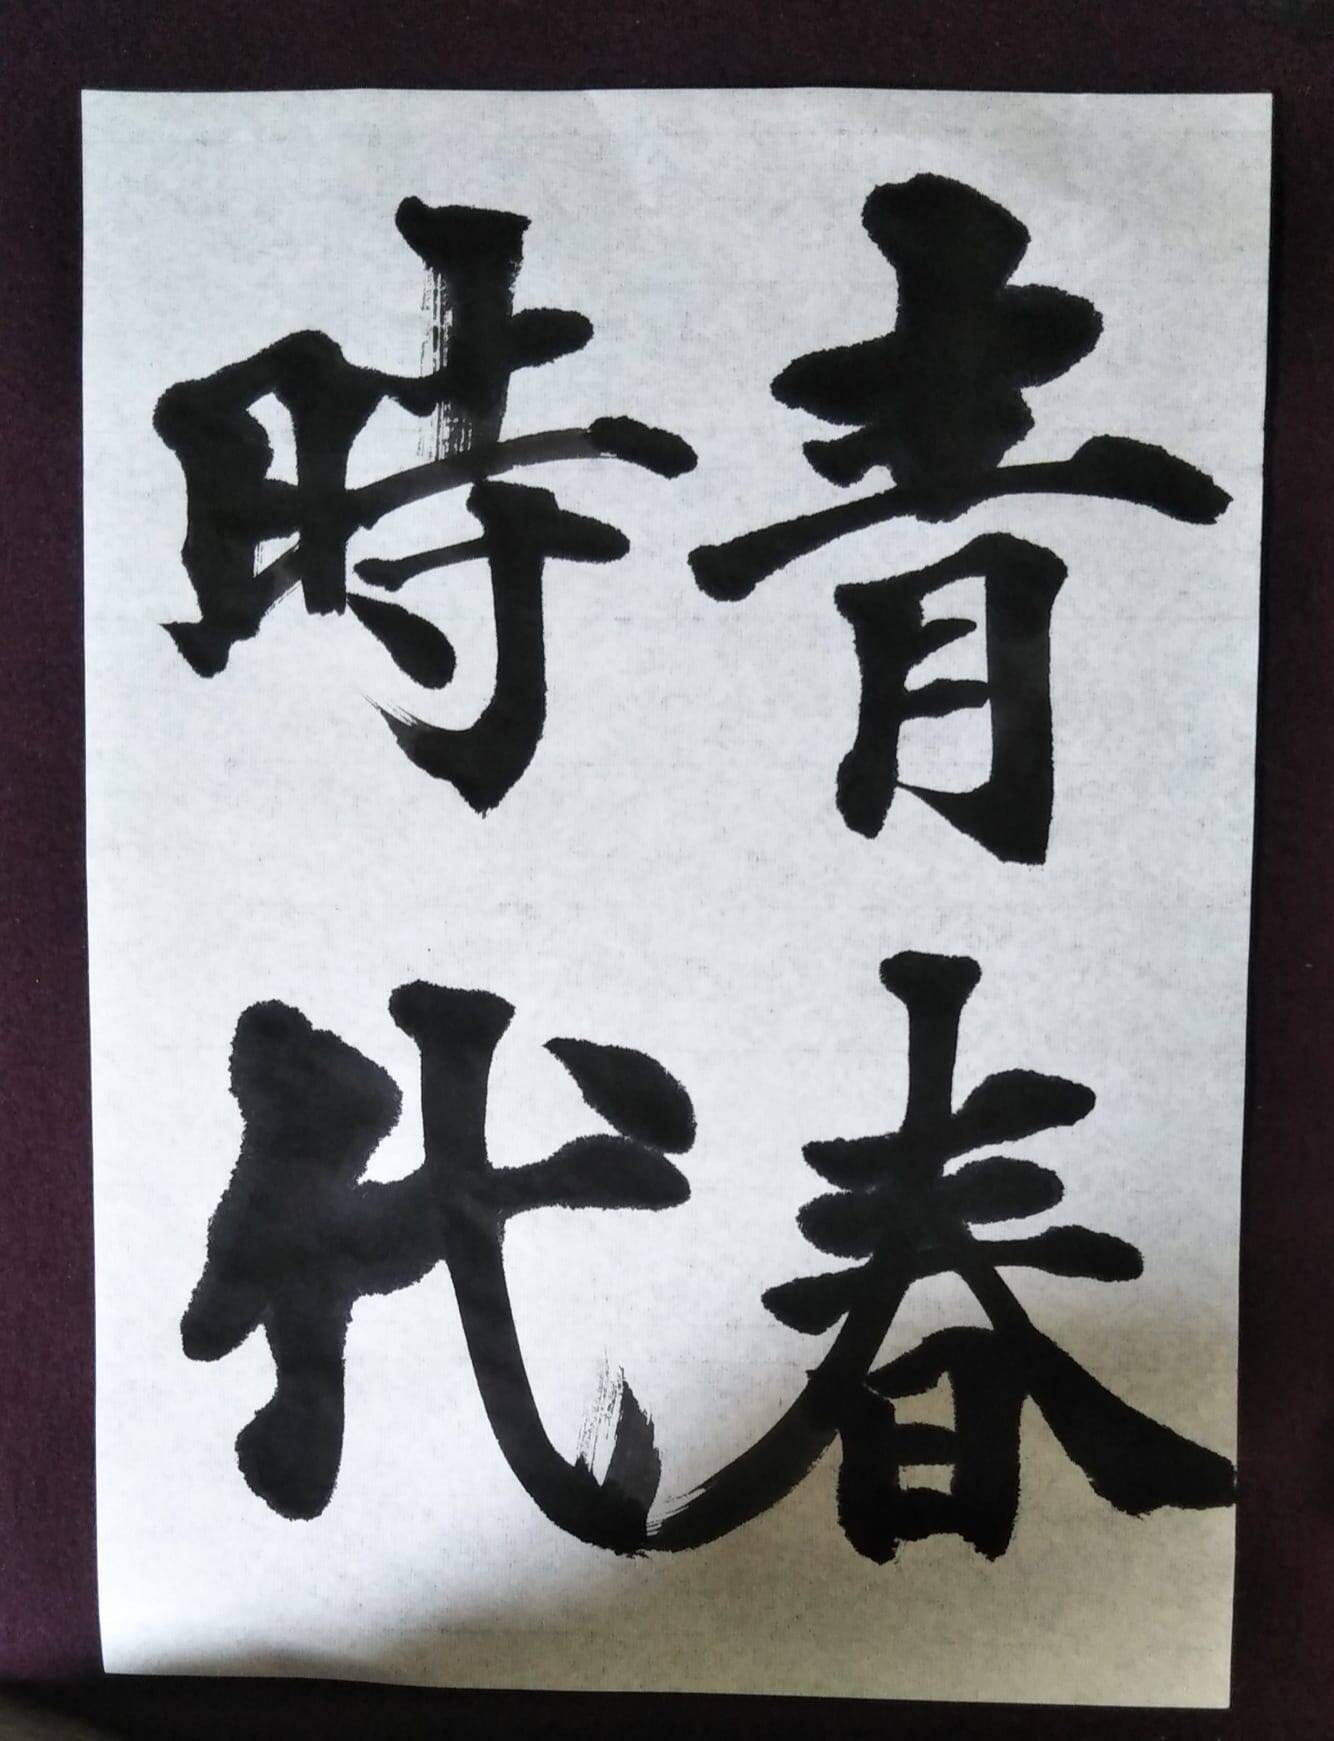 青春
時代